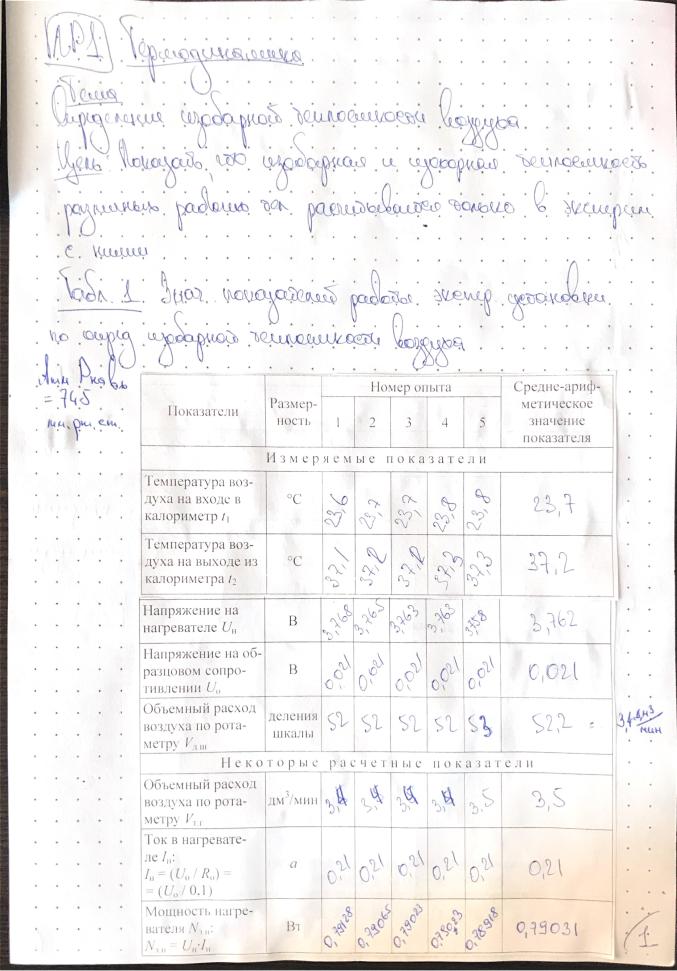 Л.Р.1 Термодинамика
Тема
Определение изобарной теплоемкости воздуха
Цель: Показать, что изобарная и изохорная теплоемкость
различных рабочих тел рассчитывается только в
с ними
Табл. 1. Знач. показателей работы экспер. установки
по опред изобарной теплоемкости воздуха
Атм
= 745
мм.рт.ст.
Показатели | Размер-ность | Номер опыта | Средне-ариф-метическое значение показателя
1 2 3 4 5
Измеряемые показатели
Температура воз-
духа на входе в | °C | 23,6 | 23,7 | 23,7 | 23,8 | 23,8 | 23,7
калориметр t₁
Температура воз-
духа на выходе из | °C | 37,1 | 37,2 | 37,2 | 37,3 | 37,3 | 37,2
калориметра t₂
Напряжение на
нагревателе Uн | В | 3,768 | 3,765 | 3,763 | 3,763 | 3,758 | 3,762
Напряжение на об-
разцовом сопро- | В | 0,021 | 0,021 | 0,021 | 0,021 | 0,021 | 0,021
тивлении Uо
Объемный расход
воздуха по рота- | деления шкалы | 52 | 52 | 52 | 52 | 53 | 52,2 =
метру Vл.ш
дм3/мин
Некоторые расчетные показатели
Объемный расход
воздуха по рота- | дм³/мин | 3,4 | 3,4 | 3,4 | 3,4 | 3.5 | 3,5
метру Vт.г
Ток в нагревате-
ле Iн: | а | 0,21 | 0,21 | 0,21 | 0,21 | 0,21 | 0,21
Iн = (Uо / Rо) =
= (Uо / 0.1)
Мощность нагре-
вателя Nэ.н: | Вт | 0,79128 | 0,79065 | 0,79023 | 0,79023 | 0,78918 | 0,79031
Nэ.н = Uн·Iн
1